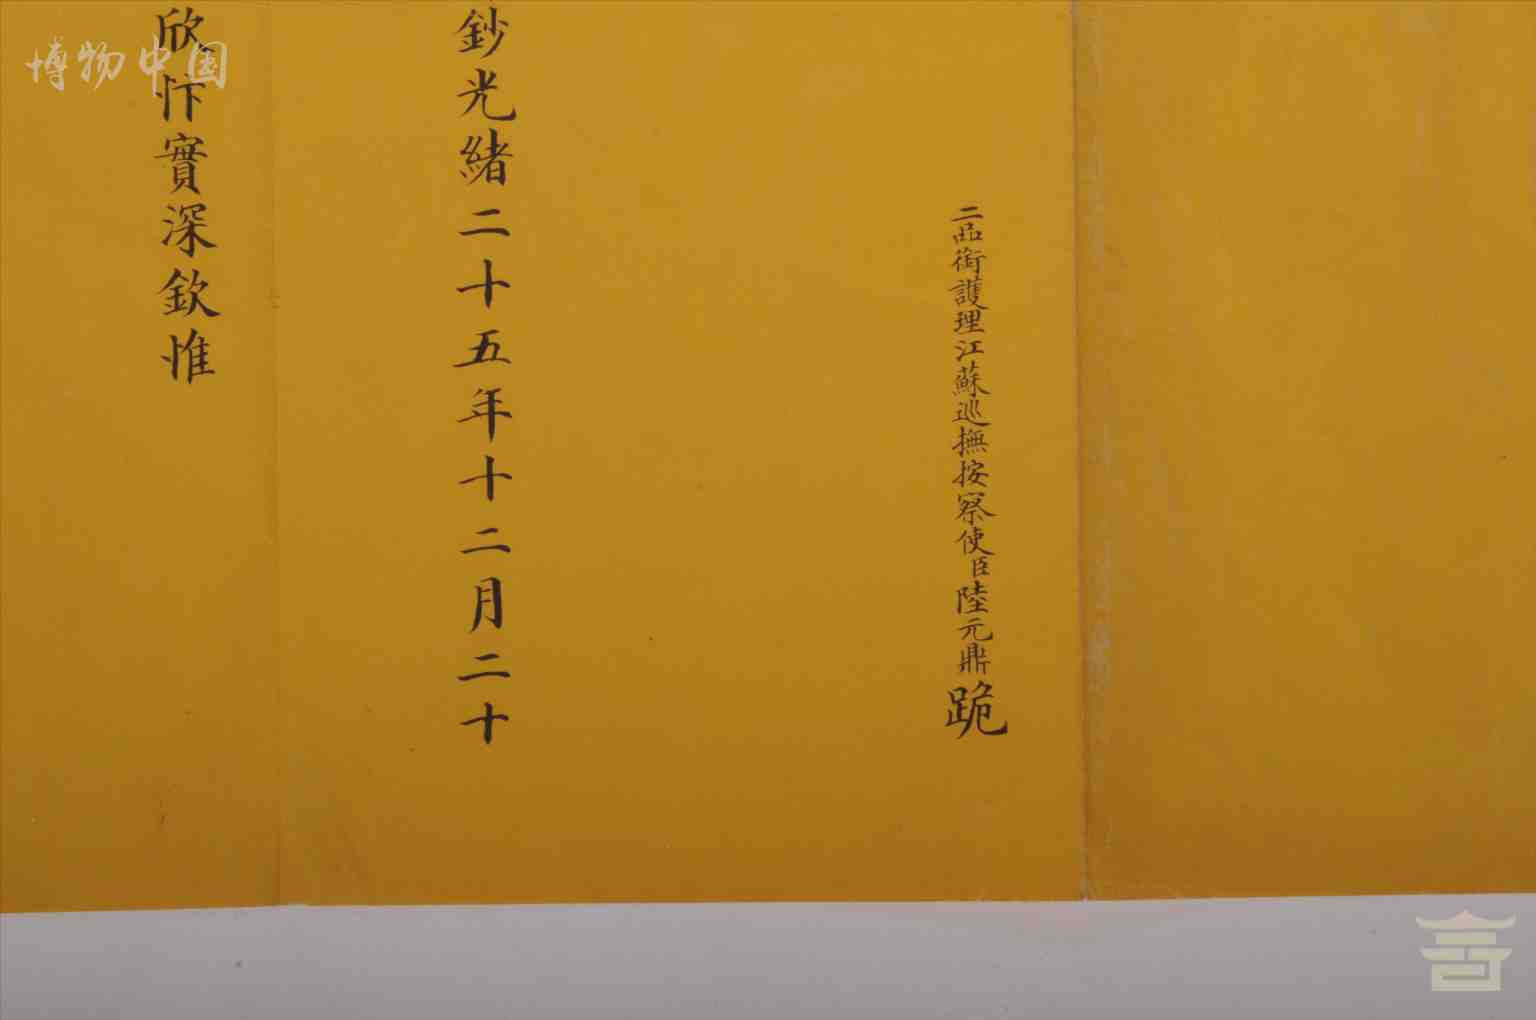 二品銜護理江蘇巡撫按察使臣陸元鼎跪
鈔光緒二十五年十二月二十
欣忭實深欽惟
博物中国